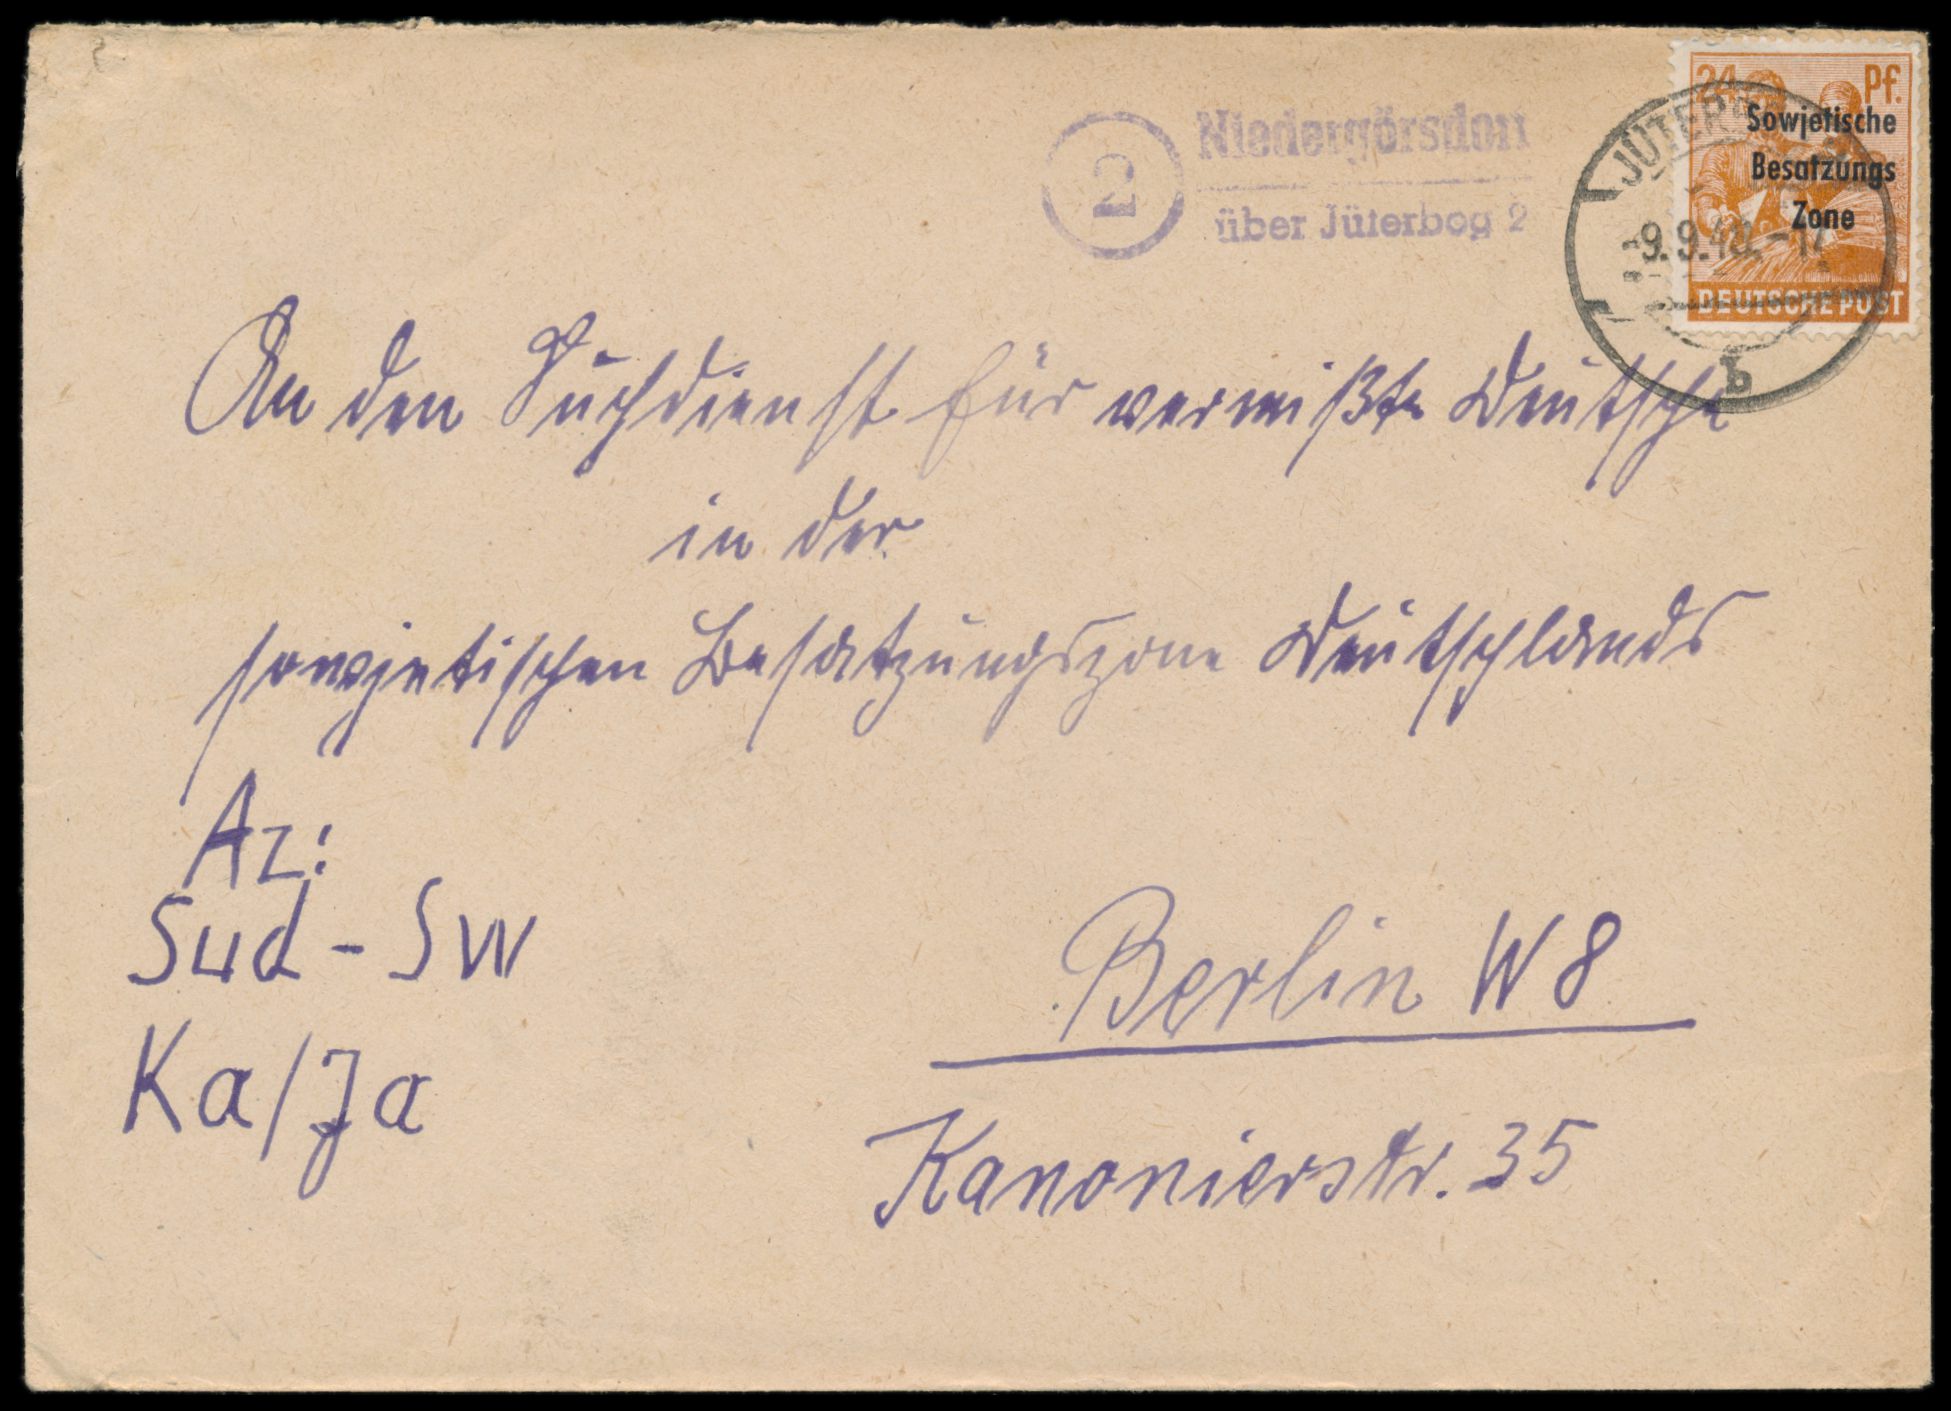 2
Niedergörsdorf
über Jüterbog 2
24 Pf.
Sowjetische
Besatzungs
Zone
DEUTSCHE POST
JÜTERB
-9.9.48.-17
b
An den Suchdienst für vermißte Deutsche
in der
sowjetischen Besatzungszone Deutschlands
Az:
Sud - SW
Ka/Ja
Berlin W 8
Kanonierstr. 35